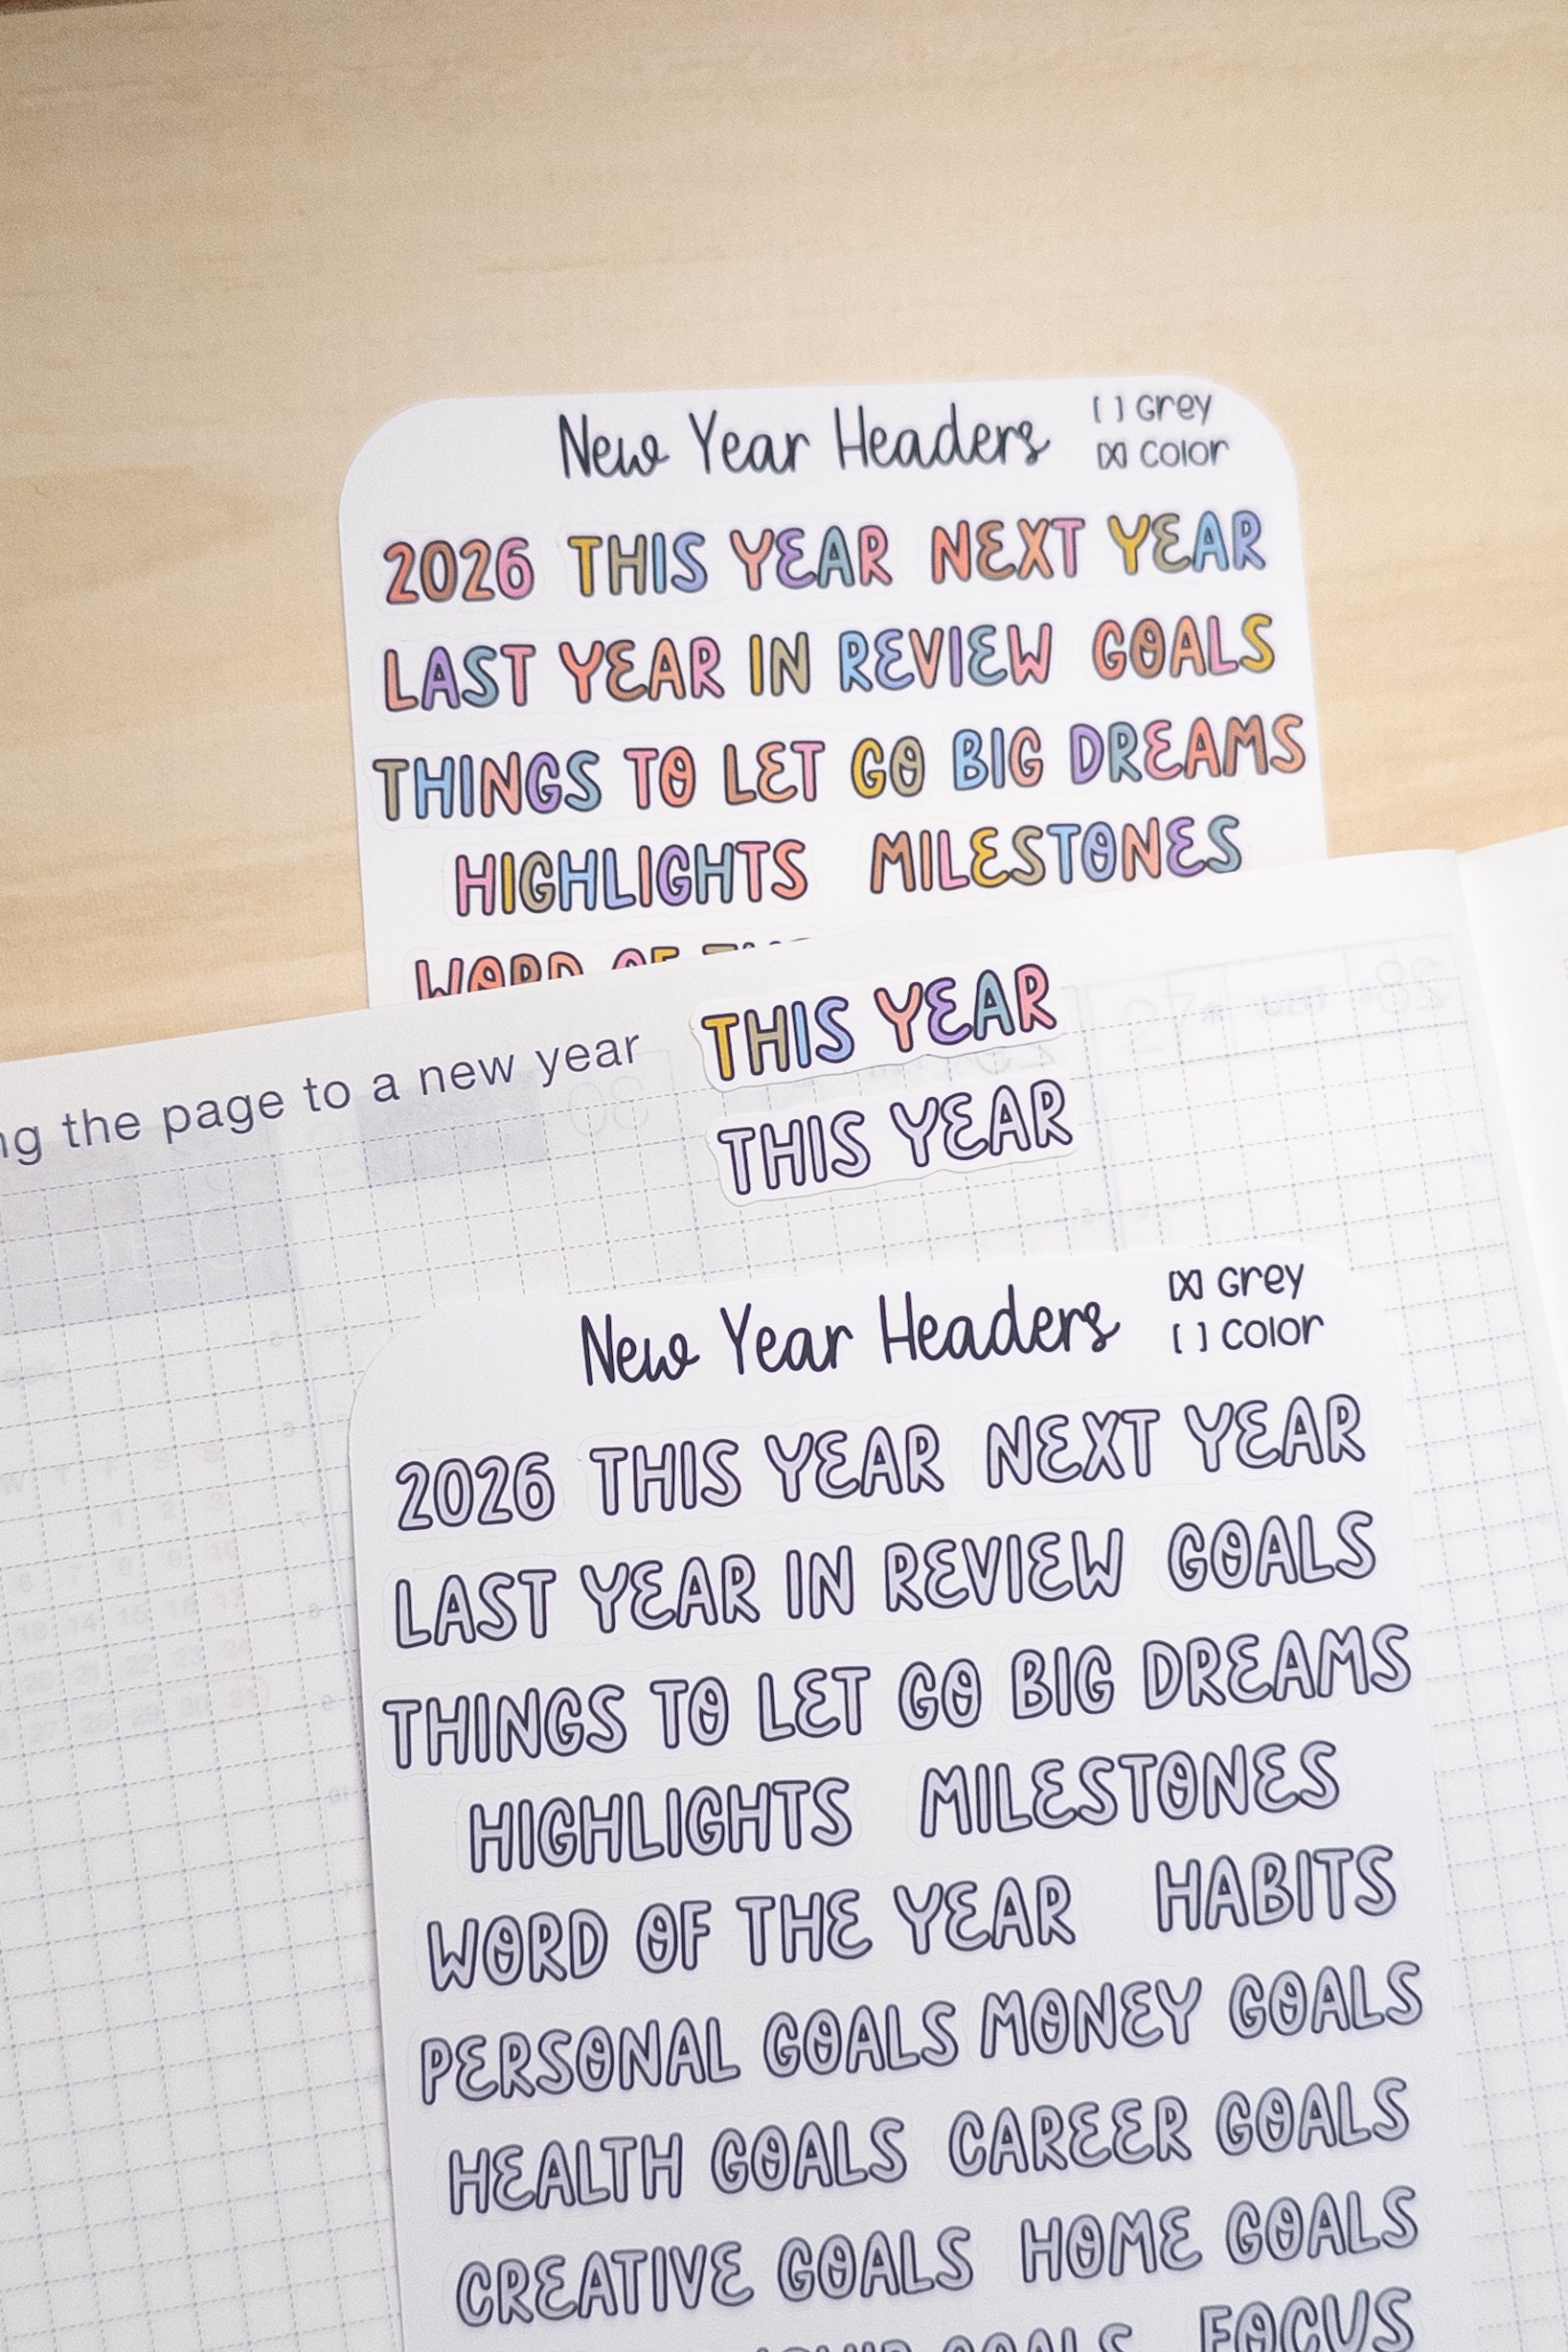 New Year Headers [ ] Grey
[X] Color
2026 THIS YEAR NEXT YEAR
LAST YEAR IN REVIEW GOALS
THINGS TO LET GO BIG DREAMS
HIGHLIGHTS MILESTONES
WORD OF
ng the page to a new year
THIS YEAR
THIS YEAR
New Year Headers [X] Grey
[ ] Color
2026 THIS YEAR NEXT YEAR
LAST YEAR IN REVIEW GOALS
THINGS TO LET GO BIG DREAMS
HIGHLIGHTS MILESTONES
WORD OF THE YEAR HABITS
PERSONAL GOALS MONEY GOALS
HEALTH GOALS CAREER GOALS
CREATIVE GOALS HOME GOALS
GOALS FOCUS